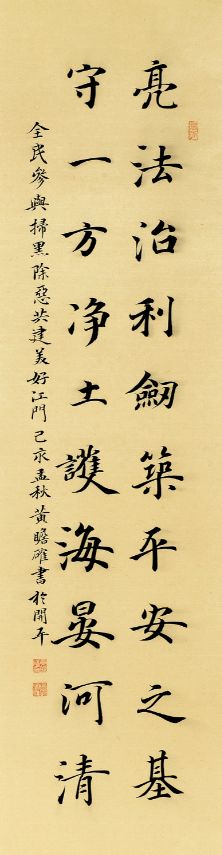 亮法治利劒築平安之基
守一方净土護海晏河清
全民參與掃黑除惡共建美好江門己亥孟秋黃瞻確書於開平